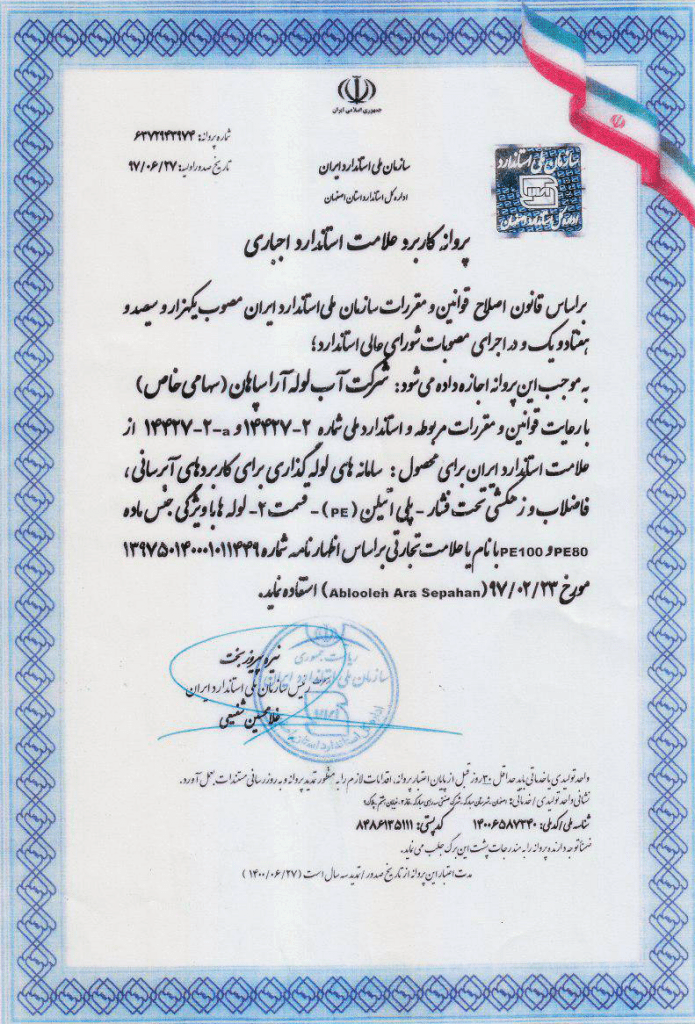 جمهوری اسلامی ایران
شماره پروانه: ۶۳۷۲۹۴۳۹۷۴
تاریخ صدور اولیه: ۹۷/۰۶/۲۷
سازمان ملی استاندارد ایران
اداره کل استاندارد استان اصفهان
سازمان ملی استاندارد
اداره کل استاندارد اصفهان
پروانه کاربرد علامت استاندارد اجباری
براساس قانون اصلاح قوانین و مقررات سازمان ملی استاندارد ایران مصوب یکهزار و سیصد و
هفتاد و یک و در اجرای مصوبات شورای عالی استاندارد؛
به موجب این پروانه اجازه داده می شود: شرکت آب لوله آرا سپاهان (سهامی خاص)
با رعایت قوانین و مقررات مربوطه و استاندارد ملی شماره ۲-۱۴۴۲۷ و a-۲-۱۴۴۲۷ از
علامت استاندارد ایران برای محصول: سامانه های لوله گذاری برای کاربردهای آبرسانی،
فاضلاب و زهکشی تحت فشار - پلی اتیلن (PE) - قسمت ۲- لوله ها با ویژگی جنس ماده
PE80 و PE100 با نام یا علامت تجارتی براساس اظهارنامه شماره ۱۳۹۷۵۰۱۴۰۰۰۱۰۱۱۴۴۹
مورخ ۹۷/۰۲/۲۳ (Ablooleh Ara Sepahan) استفاده نماید.
ریاست جمهوری
سازمان ملی استاندارد ایران
نیره پیروزبخت
رئیس سازمان ملی استاندارد ایران
غلامحسین شفیعی
واحد تولیدی یا خدماتی باید حداقل ۳۰ روز قبل از پایان اعتبار پروانه، اقدامات لازم را به منظور تمدید پروانه و به روز رسانی مستندات بعمل آورد.
نشانی واحد تولیدی / خدماتی: اصفهان، شهرستان مبارکه، شهرک صنعتی
شناسه ملی/کد ملی: ۱۴۰۰۶۵۸۷۳۴۰ کد پستی: ۸۴۸۶۱۳۵۱۱۱
ضمنا توجه دارنده پروانه را به مندرجات پشت این برگ جلب می نماید.
مدت اعتبار این پروانه از تاریخ صدور / تمدید سه سال است (۱۴۰۰/۰۶/۲۷)